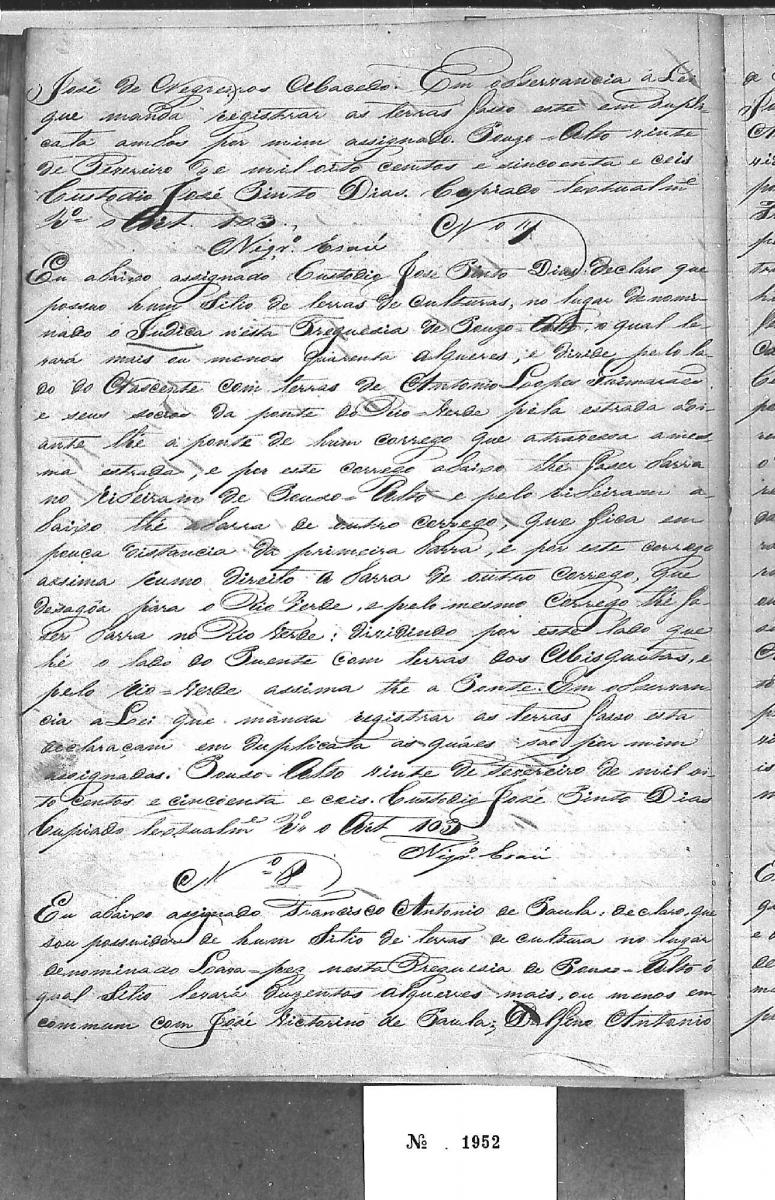 José de Negreiros Macedo. Em observancia á Lei
que manda registrar as terras fasso este em dupli-
cata ambos por mim assignado. Pouzo-Alto vinte
de Fevereiro de mil oito centos e sincoenta e ceis
Custodio José Pinto Dias. Copiado textualme
Vo o Art 103.
Nigro
No 7
Eu abaixo assignado Custodio José Pinto Dias: declaro que
possuo hum Sitio de terras de culturas, no lugar denomi-
nado o Judica n'esta Freguesia de Pouzo-Alto, o qual le-
vará mais ou menos quirenta alqueres, e divide pelo la-
do do Nascente com terras de Antonio Loopes Guimaraes
e seus socios da ponte do Rio-Verde pela estrada adi-
ante thé a ponte de hum corrego que atravessa a mes-
ma estrada, e por este corrego abaixo thé faser barra
no ribeiram de Pouso-Alto e pelo ribeiram a-
baixo thé a barra de outro corrego, que fica em
pouca distancia da primeira barra, e por este corrego
assima rumo direito a barra de outro corrego, que
dezagôa para o Rio Verde, e pelo mesmo corrego thé fa-
ser barra no Rio Verde; dividindo por este lado que
hé o lado do Puente com terras dos Misquitas, e
pelo Rio-Verde assima thé a Ponte. Em observan
cia a Lei que manda registrar as terras fasso esta
declaraçam em duplicata as quáes são por mim
assignadas. Pouso-Alto vinte de Fevereiro de mil oi-
to centos e cincoenta e ceis. Custodio José Pinto Dias
Cupiado textualme Vo o Art 103
Nigro
No 8
Eu abaixo assignado Francisco Antonio de Paula: declaro, que
sou possuidor de hum Sitio de terras de cultura no lugar
denominado Lava-pez nesta Freguesia de Pouso-Alto o
qual Sitio levará Duzentos alqueires mais, ou menos em
commum com José Victorino de Paula; Antonio
No. 1952